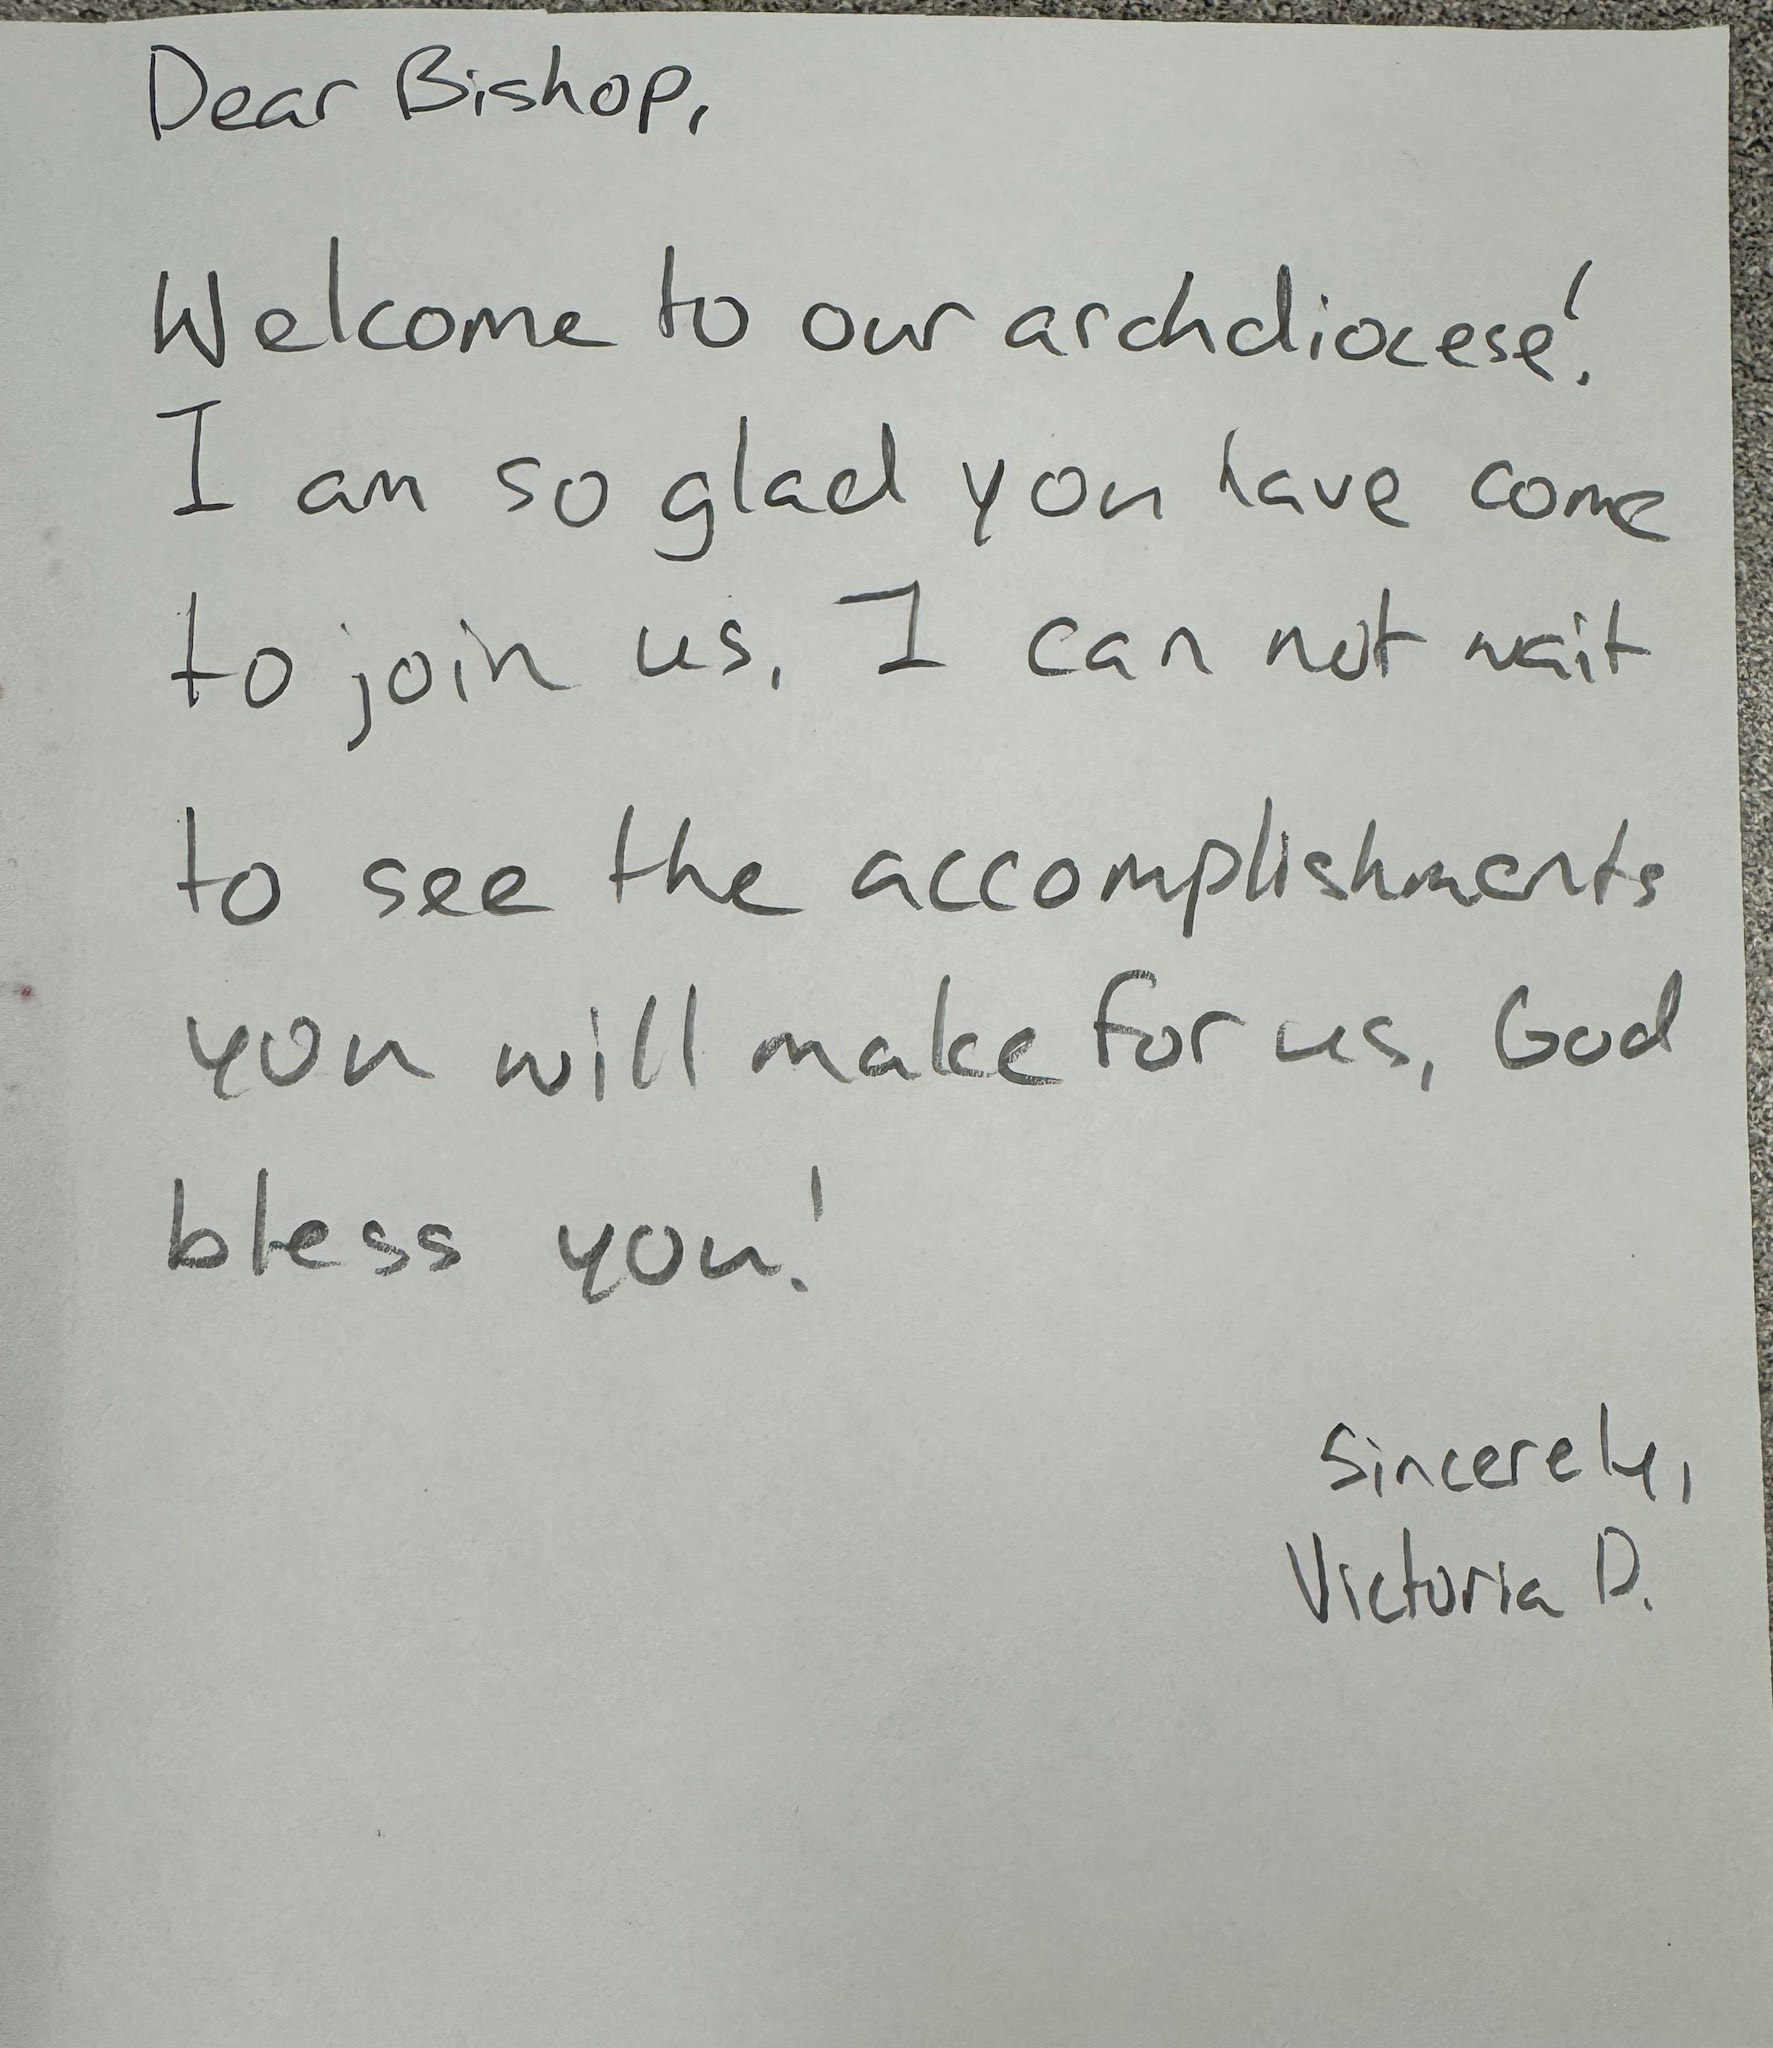 Dear Bishop,
Welcome to our archdiocese!
I am so glad you have come
to join us. I can not wait
to see the accomplishments
you will make for us, God
bless you!
Sincerely,
Victoria D.